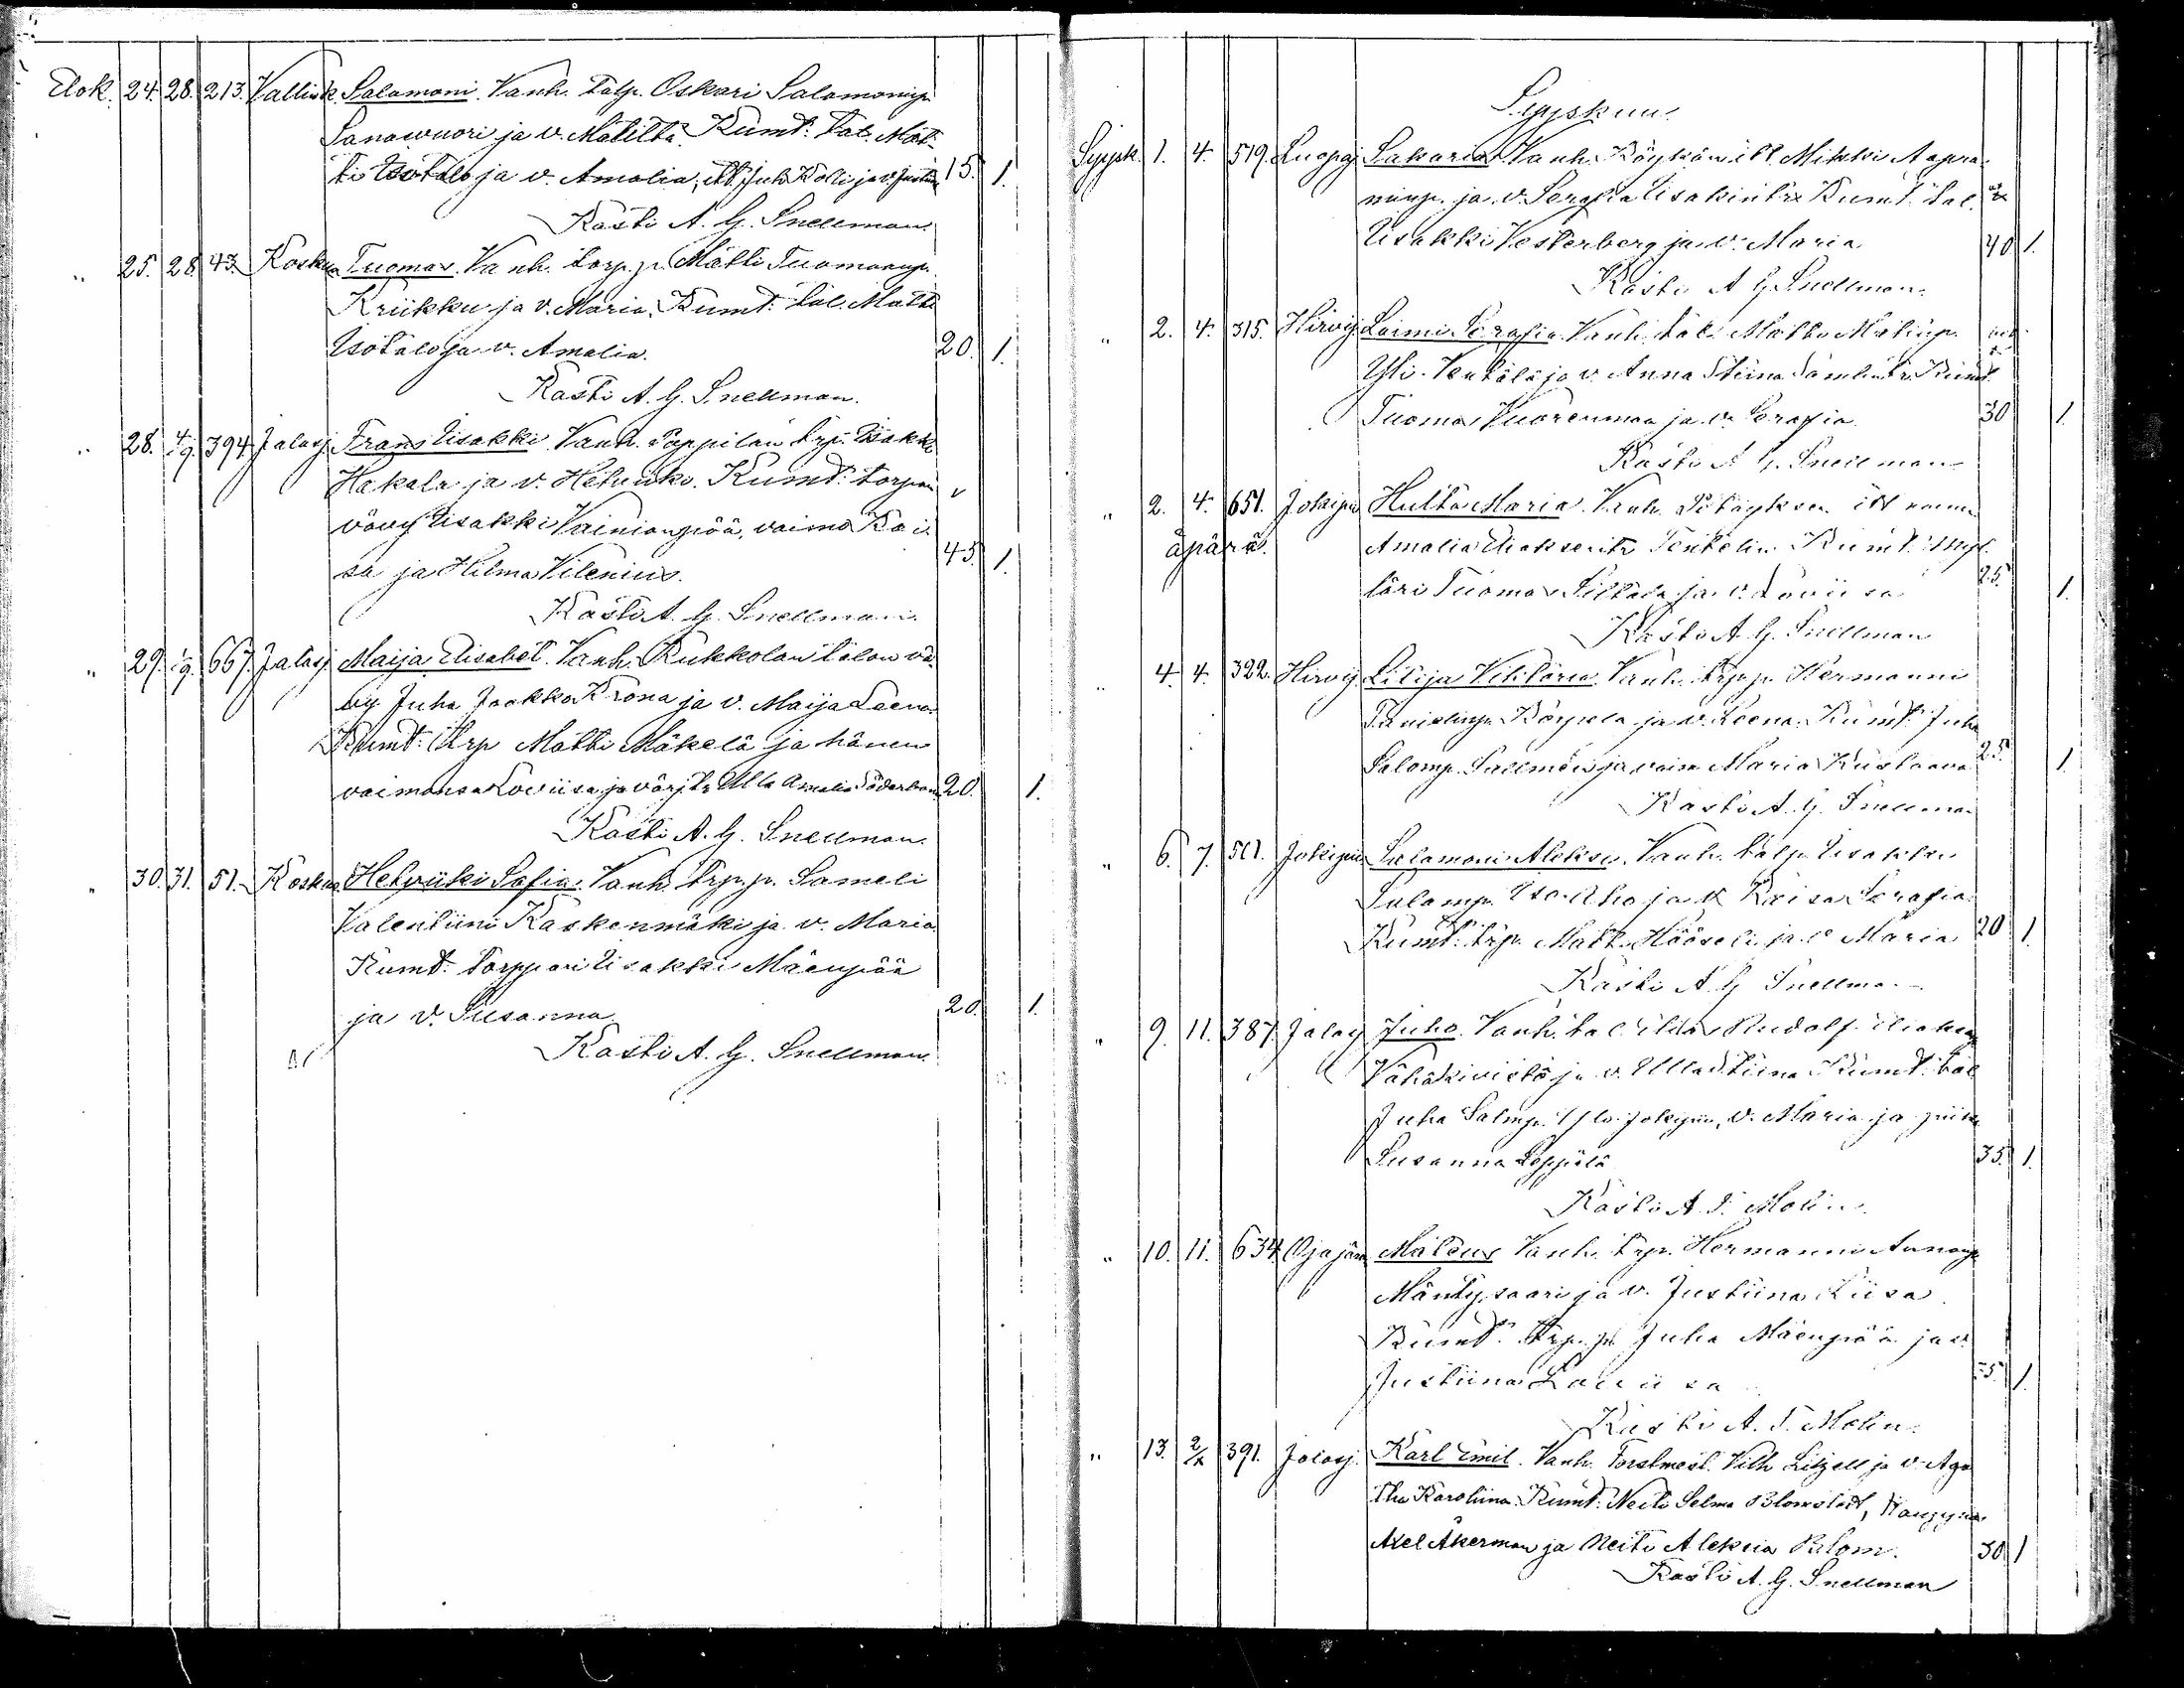 Elok. 24. 28. 213. Vallisk. Salamoni. Vanh. talp. Oskari Salomoninp.
Sanawuori ja v. Matilta. Kumt: tal. Mat-
ti Isotalo ja v. Amalia, itl. Juh. Kolli ja v. Justiina 15. 1.
Kasti A. G. Snellman.
" 25. 28. 43. Koskue Tuomas. Vanh. torp. p. Matti Tuomaanp.
Kriikku ja v. Maria. Kumt: tal. Matti
Isotalo ja v. Amalia. 20. 1.
Kasti A. G. Snellman.
" 28. 4/9. 394. Jalasj. Frans Iisakki. Vanh. Pappilan trp. Iisakki
Hakala ja v. Helviiki. Kumt: torpan
vävy Iisakki Vainionpää, vaimo Kai-
sa ja Hilma Vilenius. 45. 1.
Kasti A. G. Snellman.
" 29. 1/9. 667. Jalasj. Maija Elisabet. Vanh. Rukkolan talon vä-
vy Juha Jaakko Krona ja v. Maija Leena.
Kumt: Trp Matti Mäkelä ja hänen
vaimonsa Loviisa ja värj. tr. Ulla Amalia Söderbom 20. 1.
Kasti A. G. Snellman.
" 30. 31. 51. Koskue Helviiki Sofia. Vanh. Trp. p. Sameli
Valentiini Kaskenmäki ja v. Maria
Kumt: Torppari Iisakki Mäenpää
ja v. Susanna. 20. 1.
Kasti A. G. Snellman.
Syyskuu.
Syysk. 1. 4. 519. Luopaj. Sakaria. Vanh. Köykän itl. Mikki Aapra-
minp. ja v. Serafia Iisakintr. Kumt: tal.
Iisakki Vesterberg ja v. Maria 40 1.
Kasti A G. Snellman.
" 2. 4. 315. Hirvij. Laimi Serafia. Vanh. tal. Matti Matinp.
Yli-Ventälä ja v. Anna Stiina Samelintr. Kumt:
Tuomas Vuorenmaa ja v. Serafia. 30 1.
Kasti A G. Snellman
" 2. 4. 651. Jokipii Hulta Maria. Vanh. itl nainen
äpärä. Amalia Eliaksentr. Kumt: Myl-
läri Tuomas Siltala ja v. Loviisa 25. 1.
Kasti A. G. Snellman
" 4. 4. 322. Hirvij. Lilija Viktoria. Vanh. trp. p. Hermanni
Tanielinp. Körpela ja v. Leena. Kumt: Juha
Salomp. ja vaim. Maria Kustaava 25. 1.
Kasti A. G. Snellman
" 6. 7. 501. Jokipii Salamoni Aleksi. Vanh. talp. Iisakki
Salomp. Iso-Aho ja v. Kaisa Serafia.
Kumt: trp. Matti Hääseli ja v. Maria 20 1.
Kasti A G Snellman
" 9. 11. 387. Jalasj. Juho. Vanh. tal. Rudolf Eliaksenp.
Vähäkivistö ja v. Ulla Stiina Kumt: tal
Juha Salmp. Yli-Jokipii, v. Maria ja piika
Susanna Leppälä 35. 1.
Kasti A. F. Molin.
" 10. 11. 634. Ojajärvi Mateus Vanh. trp. Hermanni
Mäntysaari ja v. Justiina Liisa.
Kumt: Trp. p. Juha Mäenpää ja v.
Justiina Loviisa 1.
Kasti A. F. Molin.
" 13. 2/x 391. Jalasj. Karl Emil. Vanh. Forstmest. Vilh Liljell ja v. Aga-
tha Karoliina. Kumt: Neiti Selma Blomstedt,
Axel Åkerman ja Neiti Aleksia Blom. 30 1
Kasti A. G. Snellman